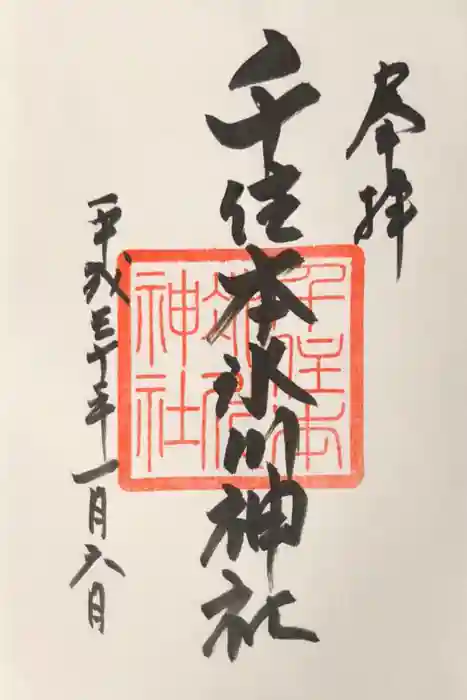 奉拝
千住本氷川神社
平成三十年一月六日
千住本
氷川
神社